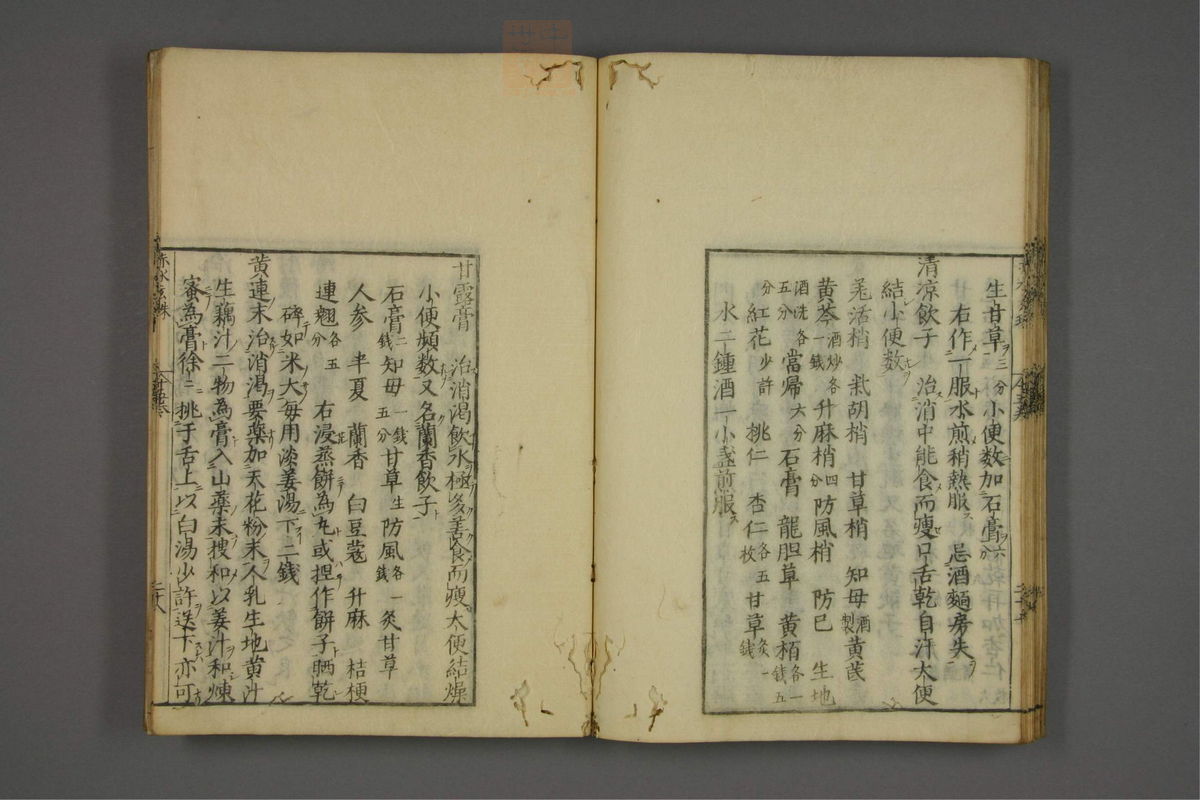 生甘草三分小便数加石膏六分
右作一服水煎稍熱服忌酒麺房失
清凉飲子 治消中能食而瘦口舌乾自汗大便
結小便数
羌活梢 柴胡梢 甘草梢 知母酒製黄芪
黄芩酒炒各一錢升麻梢四分防風梢 防巳 生地
酒洗各五分當帰大分石膏 龍胆草 黄栢各一錢五
分紅花少許 桃仁 杏仁各五枚甘草炙一錢
水二鍾酒一小盞煎服
甘露膏 治消渇飲水極多善食而瘦大便結燥
小便頻数又名蘭香飲子
石膏二錢知母一錢五分甘草生防風各一錢炙甘草
人参 半夏 蘭香 白豆蔲 升麻 桔梗
連翹各五分 右浸蒸餅為丸或捏作餅子晒乾
碎如米大毎用淡姜湯下二錢
黄連末治消渇要薬加天花粉末人乳生地黄汁
生藕汁二物為膏入山薬末搜和以姜汁和煉
蜜為膏徐二挑于舌上以白湯少許送下亦可
赤水玄珠
二十八